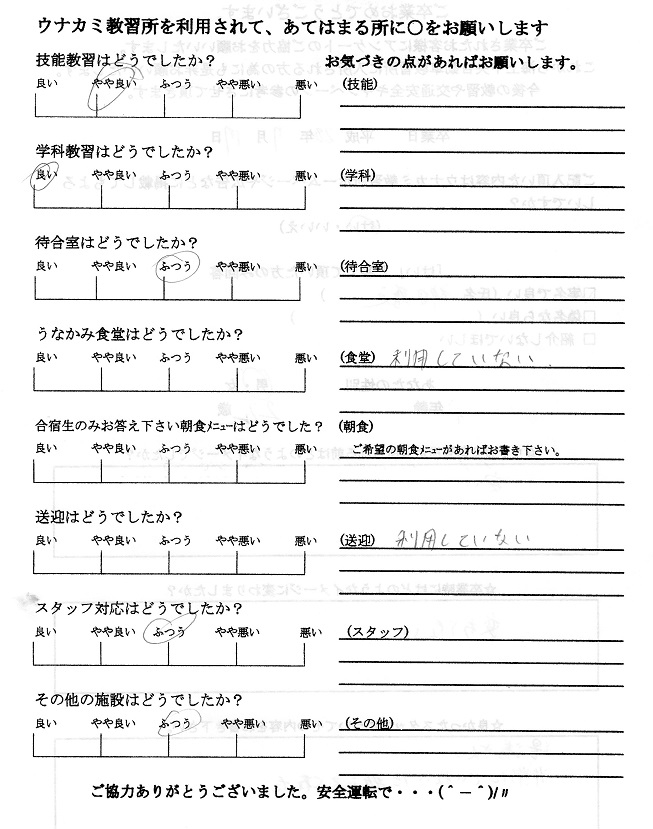 ウナカミ教習所を利用されて、あてはまる所に〇をお願いします
技能教習はどうでしたか？
お気づきの点があればお願いします。
良い やや良い ふつう やや悪い 悪い
(技能)
学科教習はどうでしたか？
良い やや良い ふつう やや悪い 悪い
(学科)
待合室はどうでしたか？
良い やや良い ふつう やや悪い 悪い
(待合室)
うなかみ食堂はどうでしたか？
良い やや良い ふつう やや悪い 悪い
(食堂) 利用していない．
合宿生のみお答え下さい朝食ﾒﾆｭｰはどうでした？
(朝食)
良い やや良い ふつう やや悪い 悪い
ご希望の朝食ﾒﾆｭｰがあればお書き下さい。
送迎はどうでしたか？
良い やや良い ふつう やや悪い 悪い
(送迎) 利用していない
スタッフ対応はどうでしたか？
良い やや良い ふつう やや悪い 悪い
(スタッフ)
その他の施設はどうでしたか？
良い やや良い ふつう やや悪い 悪い
(その他)
ご協力ありがとうございました。安全運転で・・・(＾－＾)/〃